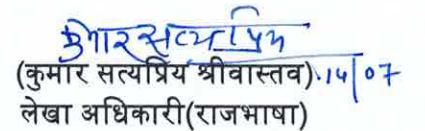 कुमार सत्यप्रिय
(कुमार सत्यप्रिय श्रीवास्तव) 14/07
लेखा अधिकारी(राजभाषा)